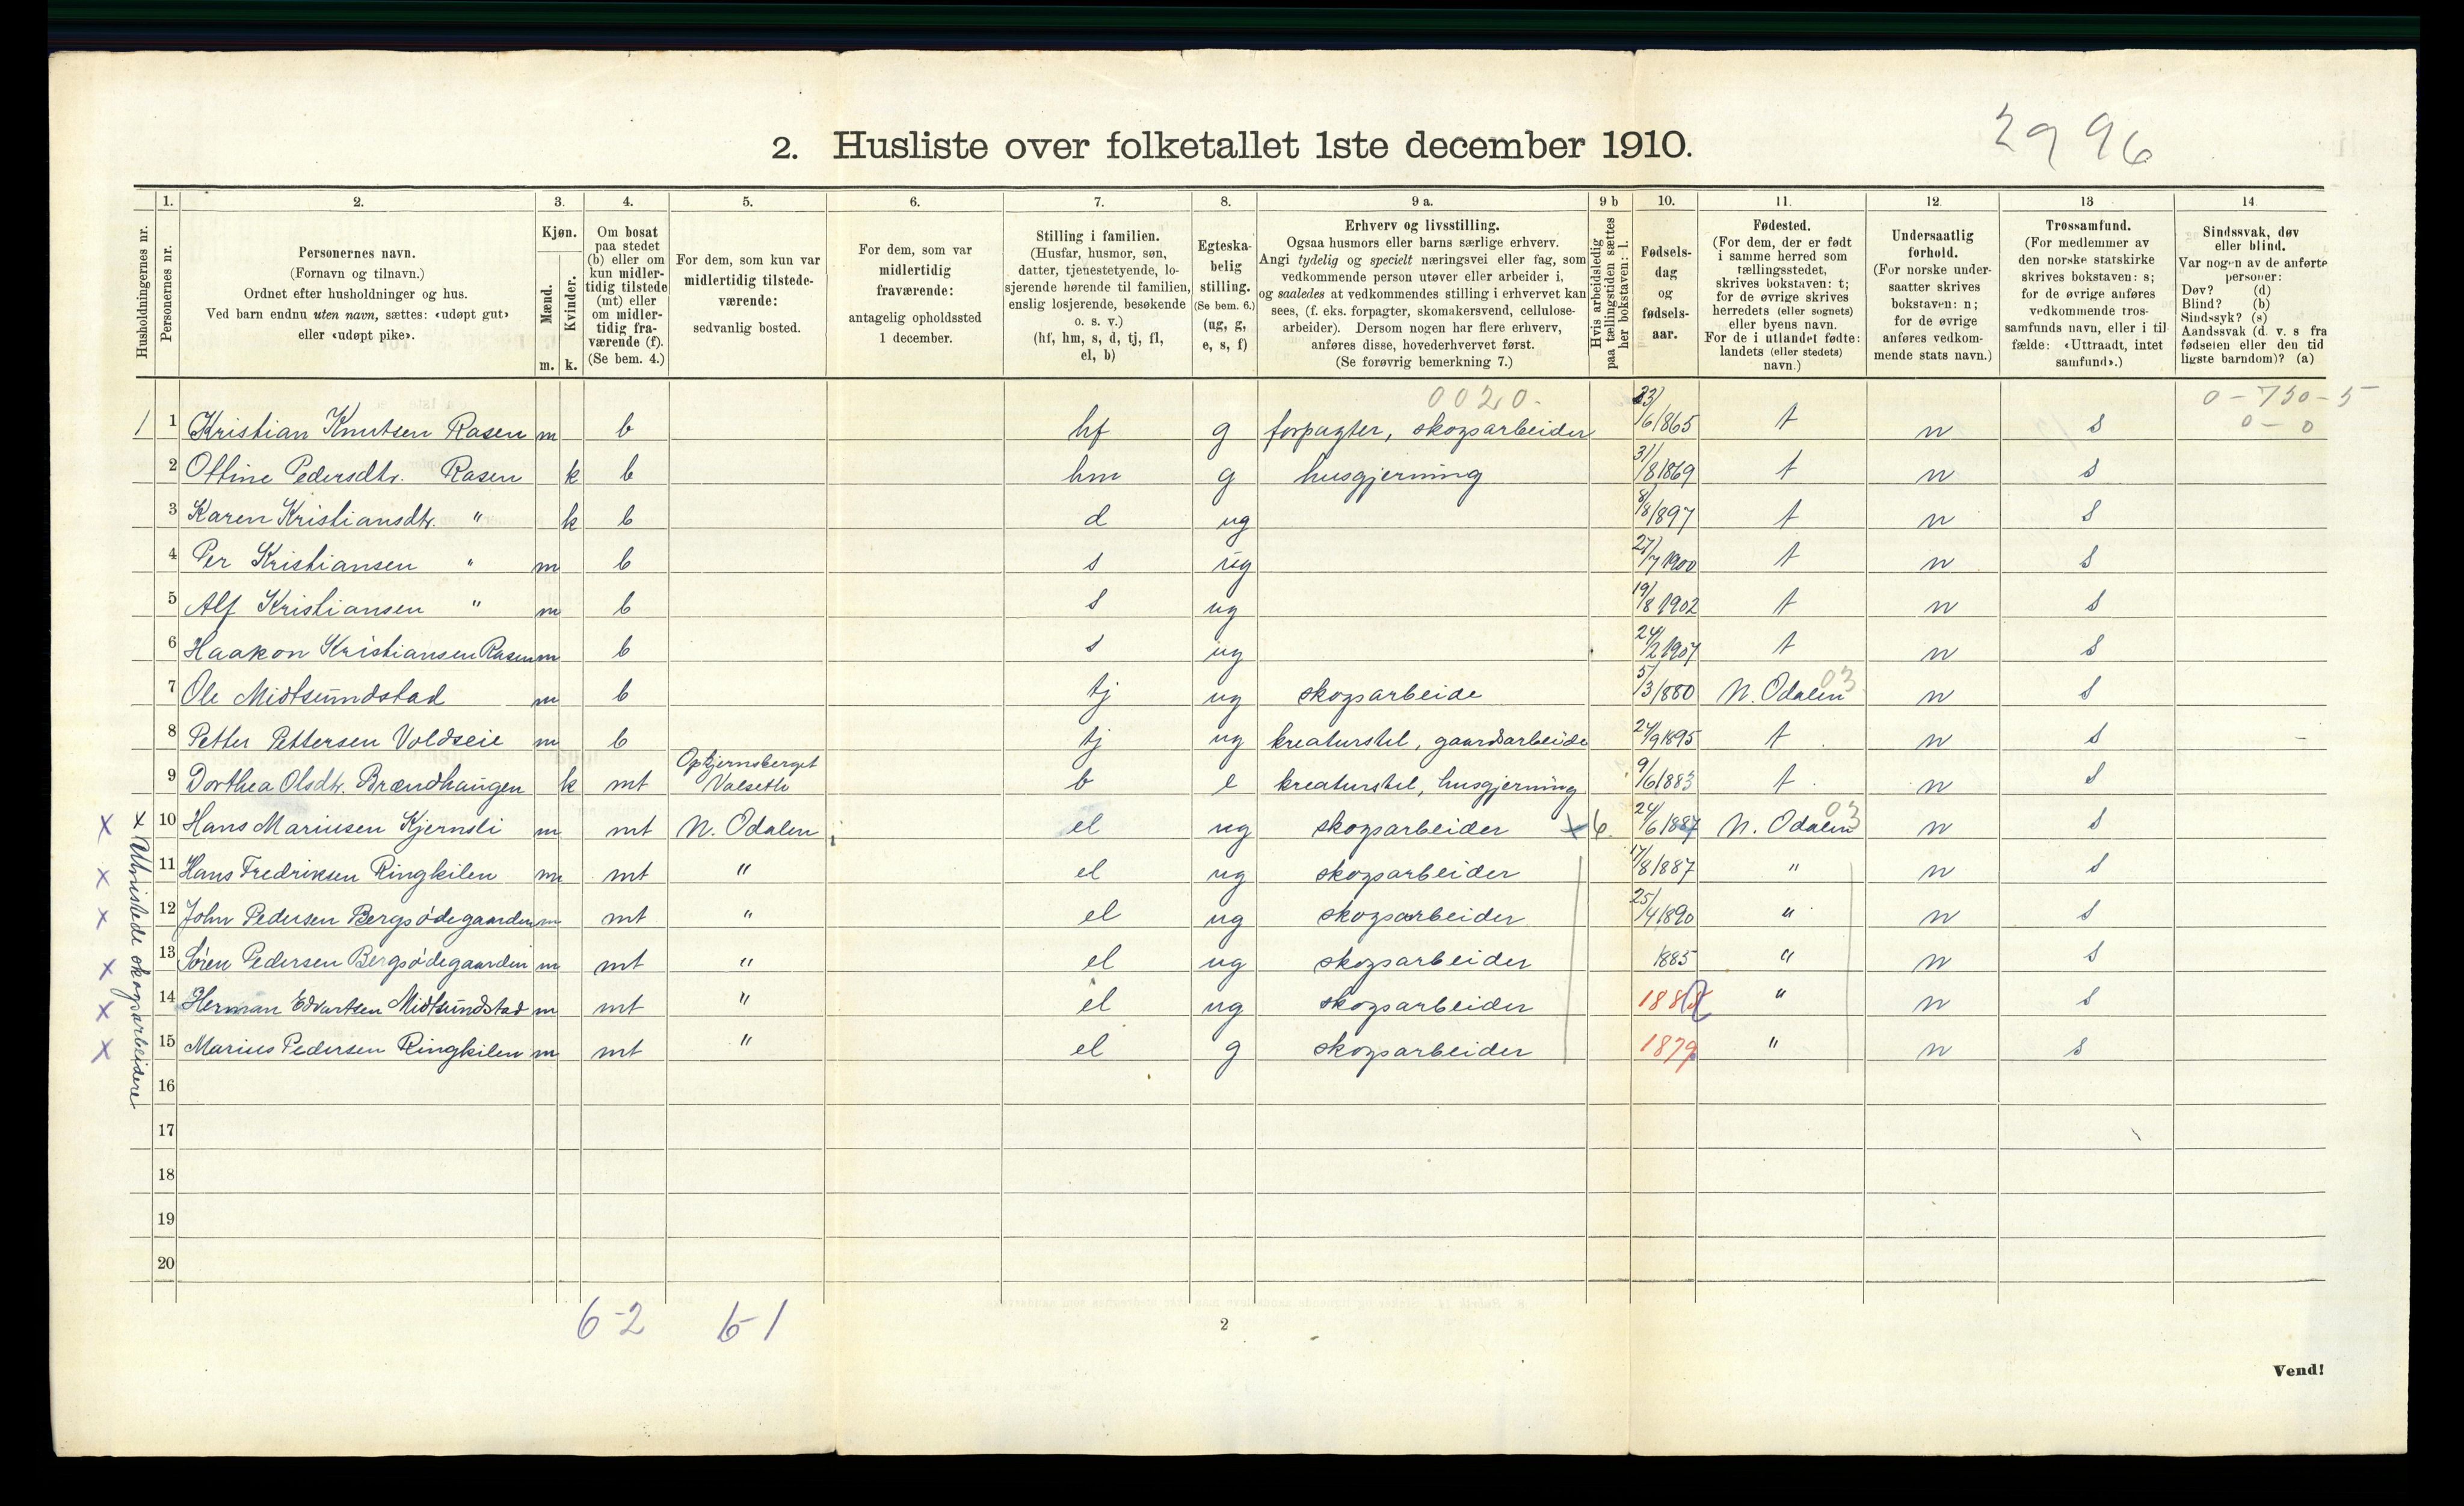 29 96
2. Husliste over folketallet 1ste december 1910.
Husholdningernes nr.
1. Personernes nr.
2. Personernes navn.
(Fornavn og tilnavn.)
Ordnet efter husholdninger og hus.
Ved barn endnu uten navn, sættes: «udøpt gut»
eller «udøpt pike».
3. Kjøn.
Mænd. m.
Kvinder. k.
4. Om bosat
paa stedet
(b) eller om
kun midler-
tidig tilstede
(mt) eller
om midler-
tidig fra-
værende (f).
(Se bem. 4.)
5. For dem, som kun var
midlertidig tilstede-
værende:
sedvanlig bosted.
6. For dem, som var
midlertidig
fraværende:
antagelig opholdssted
1 december.
7. Stilling i familien.
(Husfar, husmor, søn,
datter, tjenestetyende, lo-
sjerende hørende til familien,
enslig losjerende, besøkende
o. s. v.)
(hf, hm, s, d, tj, fl,
el, b)
8. Egteska-
belig
stilling.
(Se bem. 6.)
(ug, g,
e, s, f)
9 a. Erhverv og livsstilling.
Ogsaa husmors eller barns særlige erhverv.
Angi tydelig og specielt næringsvei eller fag, som
vedkommende person utøver eller arbeider i,
og saaledes at vedkommendes stilling i erhvervet kan
sees, (f. eks. forpagter, skomakersvend, cellulose-
arbeider). Dersom nogen har flere erhverv,
anføres disse, hovederhvervet først.
(Se forøvrig bemerkning 7.)
9 b Hvis arbeidsledig
paa tællingstiden sættes
her bokstaven: l.
10. Fødsels-
dag
og
fødsels-
aar.
11. Fødested.
(For dem, der er født
i samme herred som
tællingsstedet,
skrives bokstaven: t;
for de øvrige skrives
herredets (eller sognets)
eller byens navn.
For de i utlandet fødte:
landets (eller stedets)
navn.)
12. Undersaatlig
forhold.
(For norske under-
saatter skrives
bokstaven: n;
for de øvrige
anføres vedkom-
mende stats navn.)
13 Trossamfund.
(For medlemmer av
den norske statskirke
skrives bokstaven: s;
for de øvrige anføres
vedkommende tros-
samfunds navn, eller i til-
fælde: «Uttraadt, intet
samfund».)
14 Sindssvak, døv
eller blind.
Var nogen av de anførte
personer:
Døv? (d)
Blind? (b)
Sindssyk? (s)
Aandssvak (d. v. s fra
fødselen eller den tid
ligste barndom)? (a)
0020- 0-750-5
0-0
1 1 Kristian Knutsen Rasen m b hf g forpagter, skogsarbeider 23/6 1865 t n s
2 Ottine Pedersdtr. Rasen k b hm g husgjerning 31/8 1869 t n s
3 Karen Kristiansdtr. " k b d ug 8/8 1897 t n s
4 Per Kristiansen " m b s ug 27/7 1900 t n s
5 Alf Kristiansen " m b s ug 19/8 1902 t n s
6 Haakon Kristiansen Rasen m b s ug 24/2 1907 t n s
7 Ole Midtsundstad m b tj ug skogsarbeide 5/3 1880 N. Odalen 03 n s
8 Petter Pettersen Voldseie m b tj ug kreaturstel, gaardsarbeide 24/9 1895 t n s
9 Dorthea Olsdtr. Brændhaugen k mt Opkjernsberget
Valseth b e kreaturstel, husgjerning 9/6 1883 t n s
x 10 Hans Mariusen Kjernsli m mt N. Odalen el ug skogsarbeider x 6 24/6 1887 N. Odalen 03 n s
x 11 Hans Fredriksen Ringkilen m mt " el ug skogsarbeider 17/8 1887 " n s
x 12 John Pedersen Bergsødegaarden m mt " el ug skogsarbeider 25/4 1890 " n s
x 13 Søren Pedersen Bergsødegaarden m mt " el ug skogsarbeider 1885 " n s
x 14 Herman Edvartsen Midtsundstad m mt " el ug skogsarbeider 1882 " n s
x 15 Marius Pedersen Ringkilen m mt " el g skogsarbeider 1879 " n s
x Utvislede skogsarbeidere
16
17
18
19
20
6-2 6-1
2
Vend!